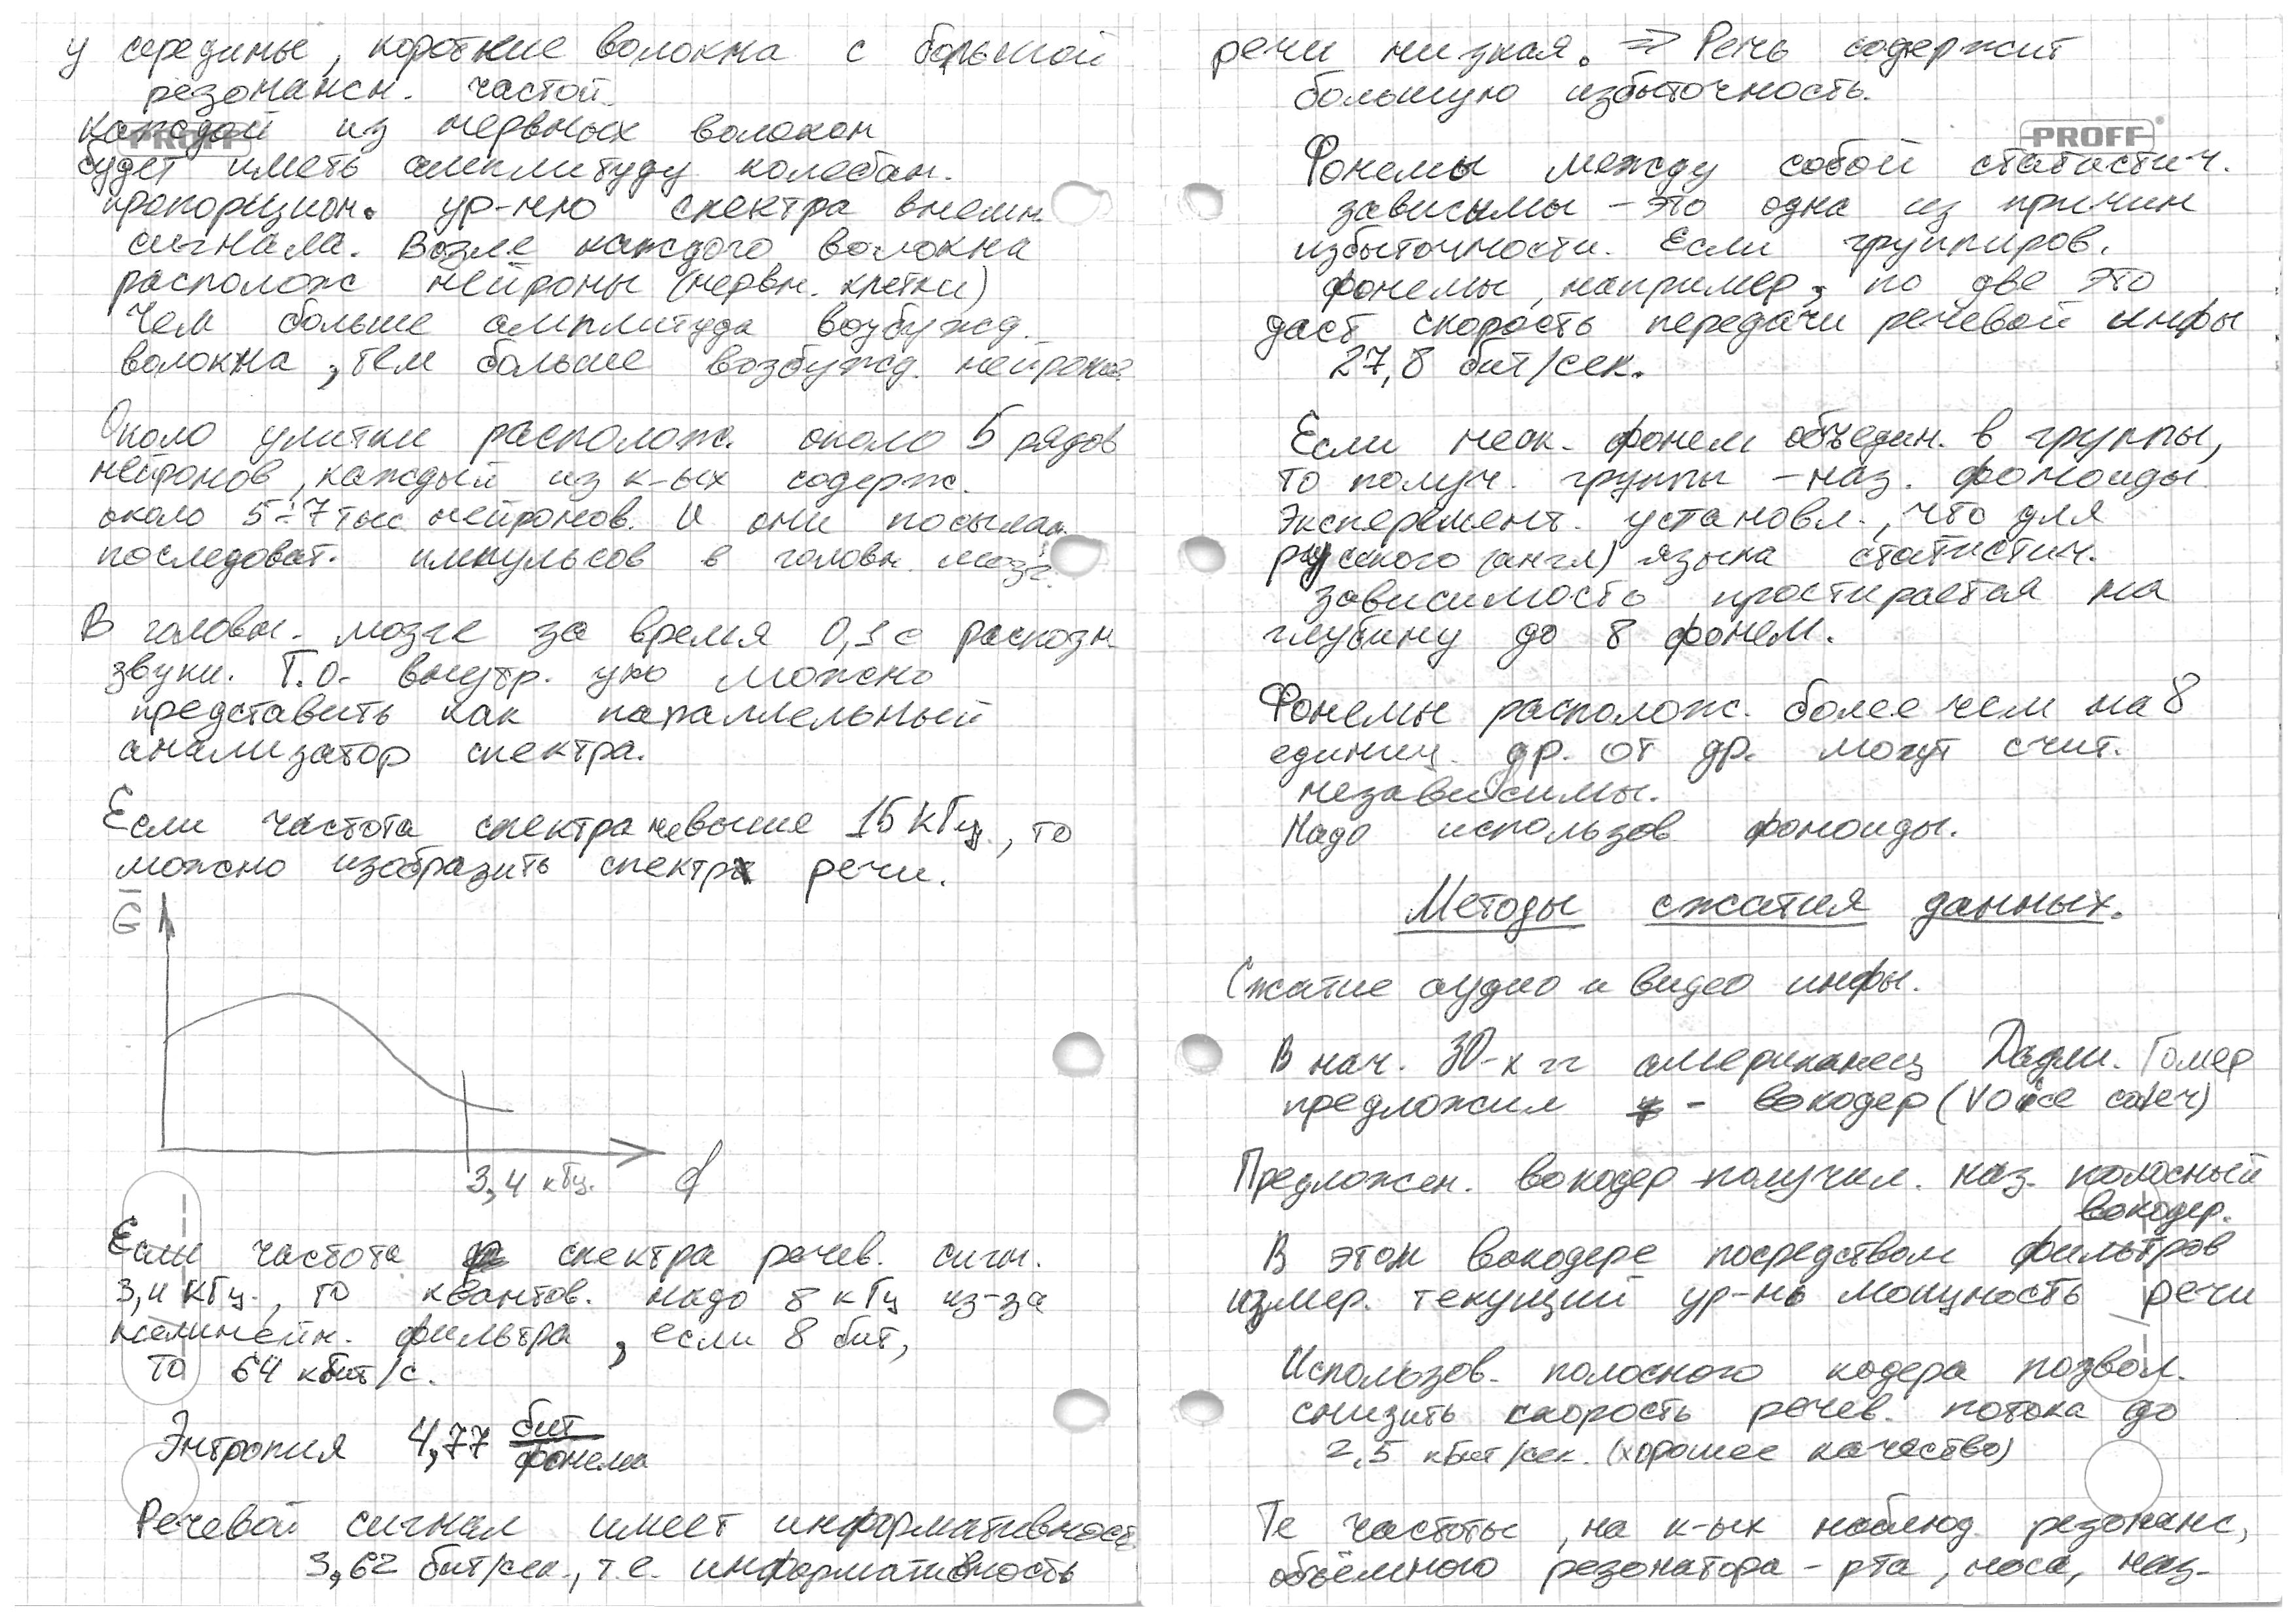 у середины, короткие волокна с большой
резонансн. частой.
каждой из нервных волокон
PROFF
будет иметь амплитуду колебан.
пропорцион. ур-ню спектра внешн.
сигнала. Возле каждого волокна
располож нейроны (нервн. клетки)
Чем больше амплитуда возбужд.
волокна, тем больше возбужд. нейрона.
Около улитки располож. около 5 рядов
нейронов, каждый из к-ых содерж.
около 5÷7 тыс нейронов. И они посылают
последоват. импульсов в головн. мозг.
В головн. мозге за время 0,1 с распозн.
звуки. Т.о. внутр. ухо можно
представить как параллельный
анализатор спектра.
Если частота спектра не выше 15 кГц, то
можно изобразить спектр речи.
G
3,4 кГц. f
Если частота спектра речев. сигн.
3,4 кГц., то квантов. надо 8 кГц из-за
нелинейн. фильтра, если 8 бит,
то 64 кбит/с.
Энтропия 4,77 бит
фонема
Речевой сигнал имеет информативность
3,62 бит/сек., т.е. информативность
речи низкая. => Речь содержит
большую избыточность.
PROFF
Фонемы между собой статистич.
зависимы – это одна из причин
избыточности. Если группиров.
фонемы, например, по две это
даст скорость передачи речевой инфы
27,8 бит/сек.
Если неск. фонем объедин. в группы,
то получ. группы – наз. фоноиды.
Эксперемент. установл., что для
русского (англ) языка статистич.
зависимость простирается на
глубину до 8 фонем.
Фонемы располож. более чем на 8
единиц. др. от др. могут счит.
независимы.
Надо использов фоноиды.
Методы сжатия данных.
Сжатие аудио и видео инфы.
В нач. 30-х гг американец Дадли. Гомер
предложил - вокодер (voice
Предложен. вокодер получил. наз. полосный
вокодер.
В этом вокодере посредством фильтров
измер. текущий ур-нь мощность речи
Использов. полосного кодера позвол.
снизить скорость речев. потока до
2,5 кбит/сек. (хорошее качество)
Те частоты, на к-ых наблюд. резонанс,
объёмного резонатора – рта, носа, наз-